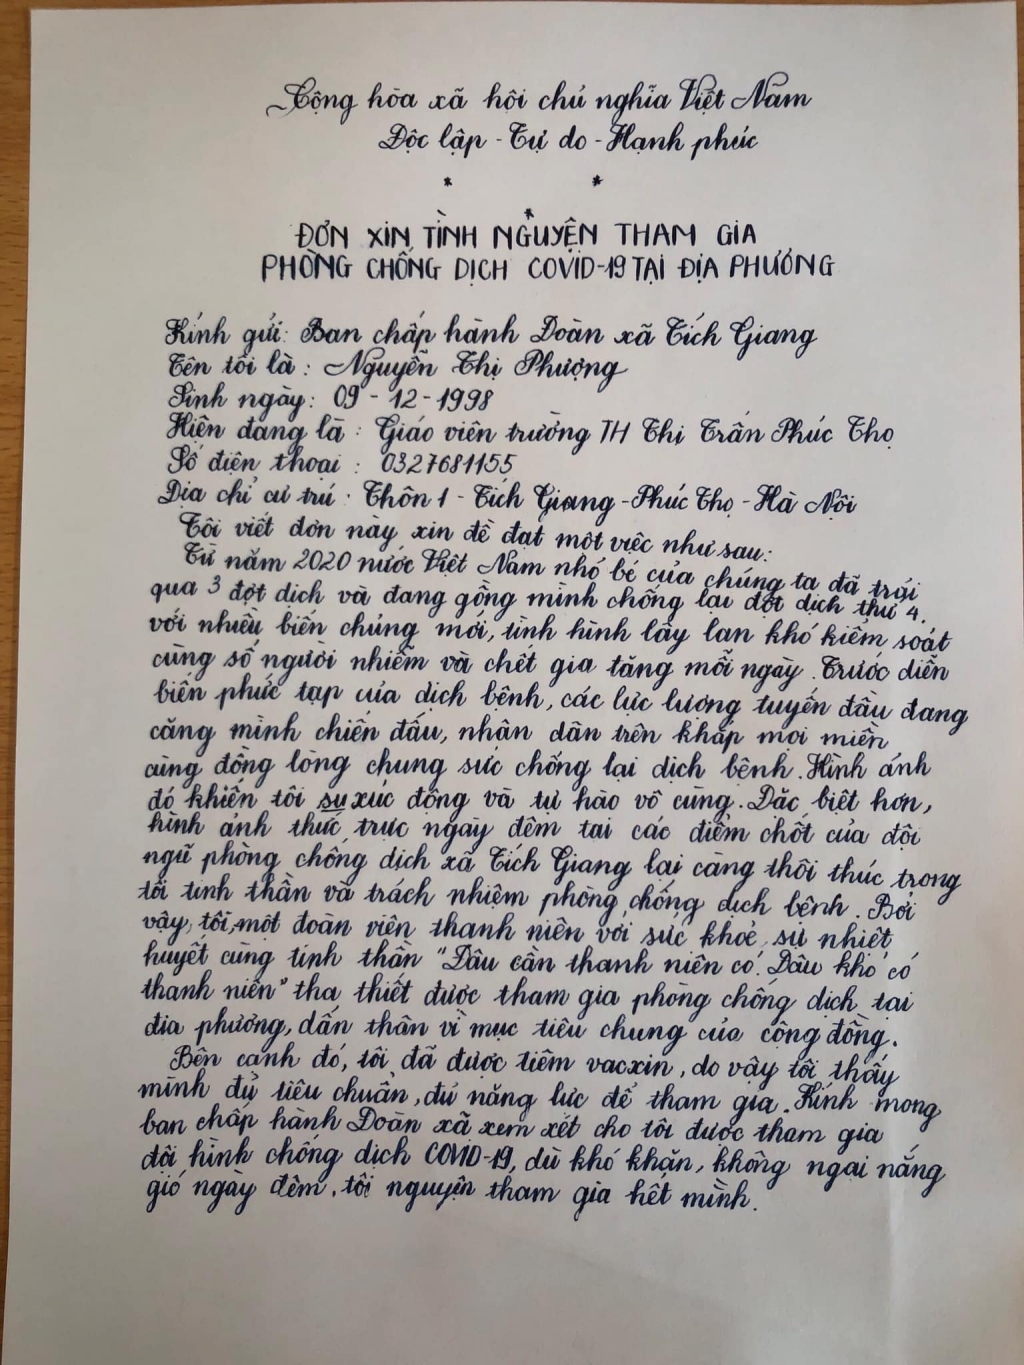 Cộng hòa xã hội chủ nghĩa Việt Nam
Độc lập - Tự do - Hạnh phúc
* *
*
ĐƠN XIN TÌNH NGUYỆN THAM GIA
PHÒNG CHỐNG DỊCH COVID-19 TẠI ĐỊA PHƯƠNG
Kính gửi: Ban chấp hành Đoàn xã Tích Giang
Tên tôi là: Nguyễn Thị Phượng
Sinh ngày: 09 - 12 - 1998
Hiện đang là: Giáo viên trường TH Thị Trấn Phúc Thọ
Số điện thoại: 0327681155
Địa chỉ cư trú: Thôn 1 - Tích Giang - Phúc Thọ - Hà Nội
Tôi viết đơn này xin đề đạt một việc như sau:
Từ năm 2020 nước Việt Nam nhỏ bé của chúng ta đã trải
qua 3 đợt dịch và đang gồng mình chống lại đợt dịch thứ 4.
với nhiều biến chủng mới, tình hình lây lan khó kiểm soát
cùng số người nhiễm và chết gia tăng mỗi ngày. Trước diễn
biến phức tạp của dịch bệnh, các lực lượng tuyến đầu đang
căng mình chiến đấu, nhân dân trên khắp mọi miền
cùng đồng lòng chung sức chống lại dịch bệnh. Hình ảnh
đó khiến tôi sự xúc động và tự hào vô cùng. Đặc biệt hơn,
hình ảnh thức trực ngày đêm tại các điểm chốt của đội
ngũ phòng chống dịch xã Tích Giang lại càng thôi thúc trong
tôi tinh thần và trách nhiệm phòng chống dịch bệnh. Bởi
vậy, tôi, một đoàn viên thanh niên với sức khoẻ, sự nhiệt
huyết cùng tinh thần "Đâu cần thanh niên có. Đâu khó có
thanh niên" tha thiết được tham gia phòng chống dịch tại
địa phương, dấn thân vì mục tiêu chung của cộng đồng.
Bên cạnh đó, tôi đã được tiêm vacxin, do vậy tôi thấy
mình đủ tiêu chuẩn, đủ năng lực để tham gia. Kính mong
ban chấp hành Đoàn xã xem xét cho tôi được tham gia
đội hình chống dịch COVID-19, dù khó khăn, không ngại nắng
gió ngày đêm, tôi nguyện tham gia hết mình.